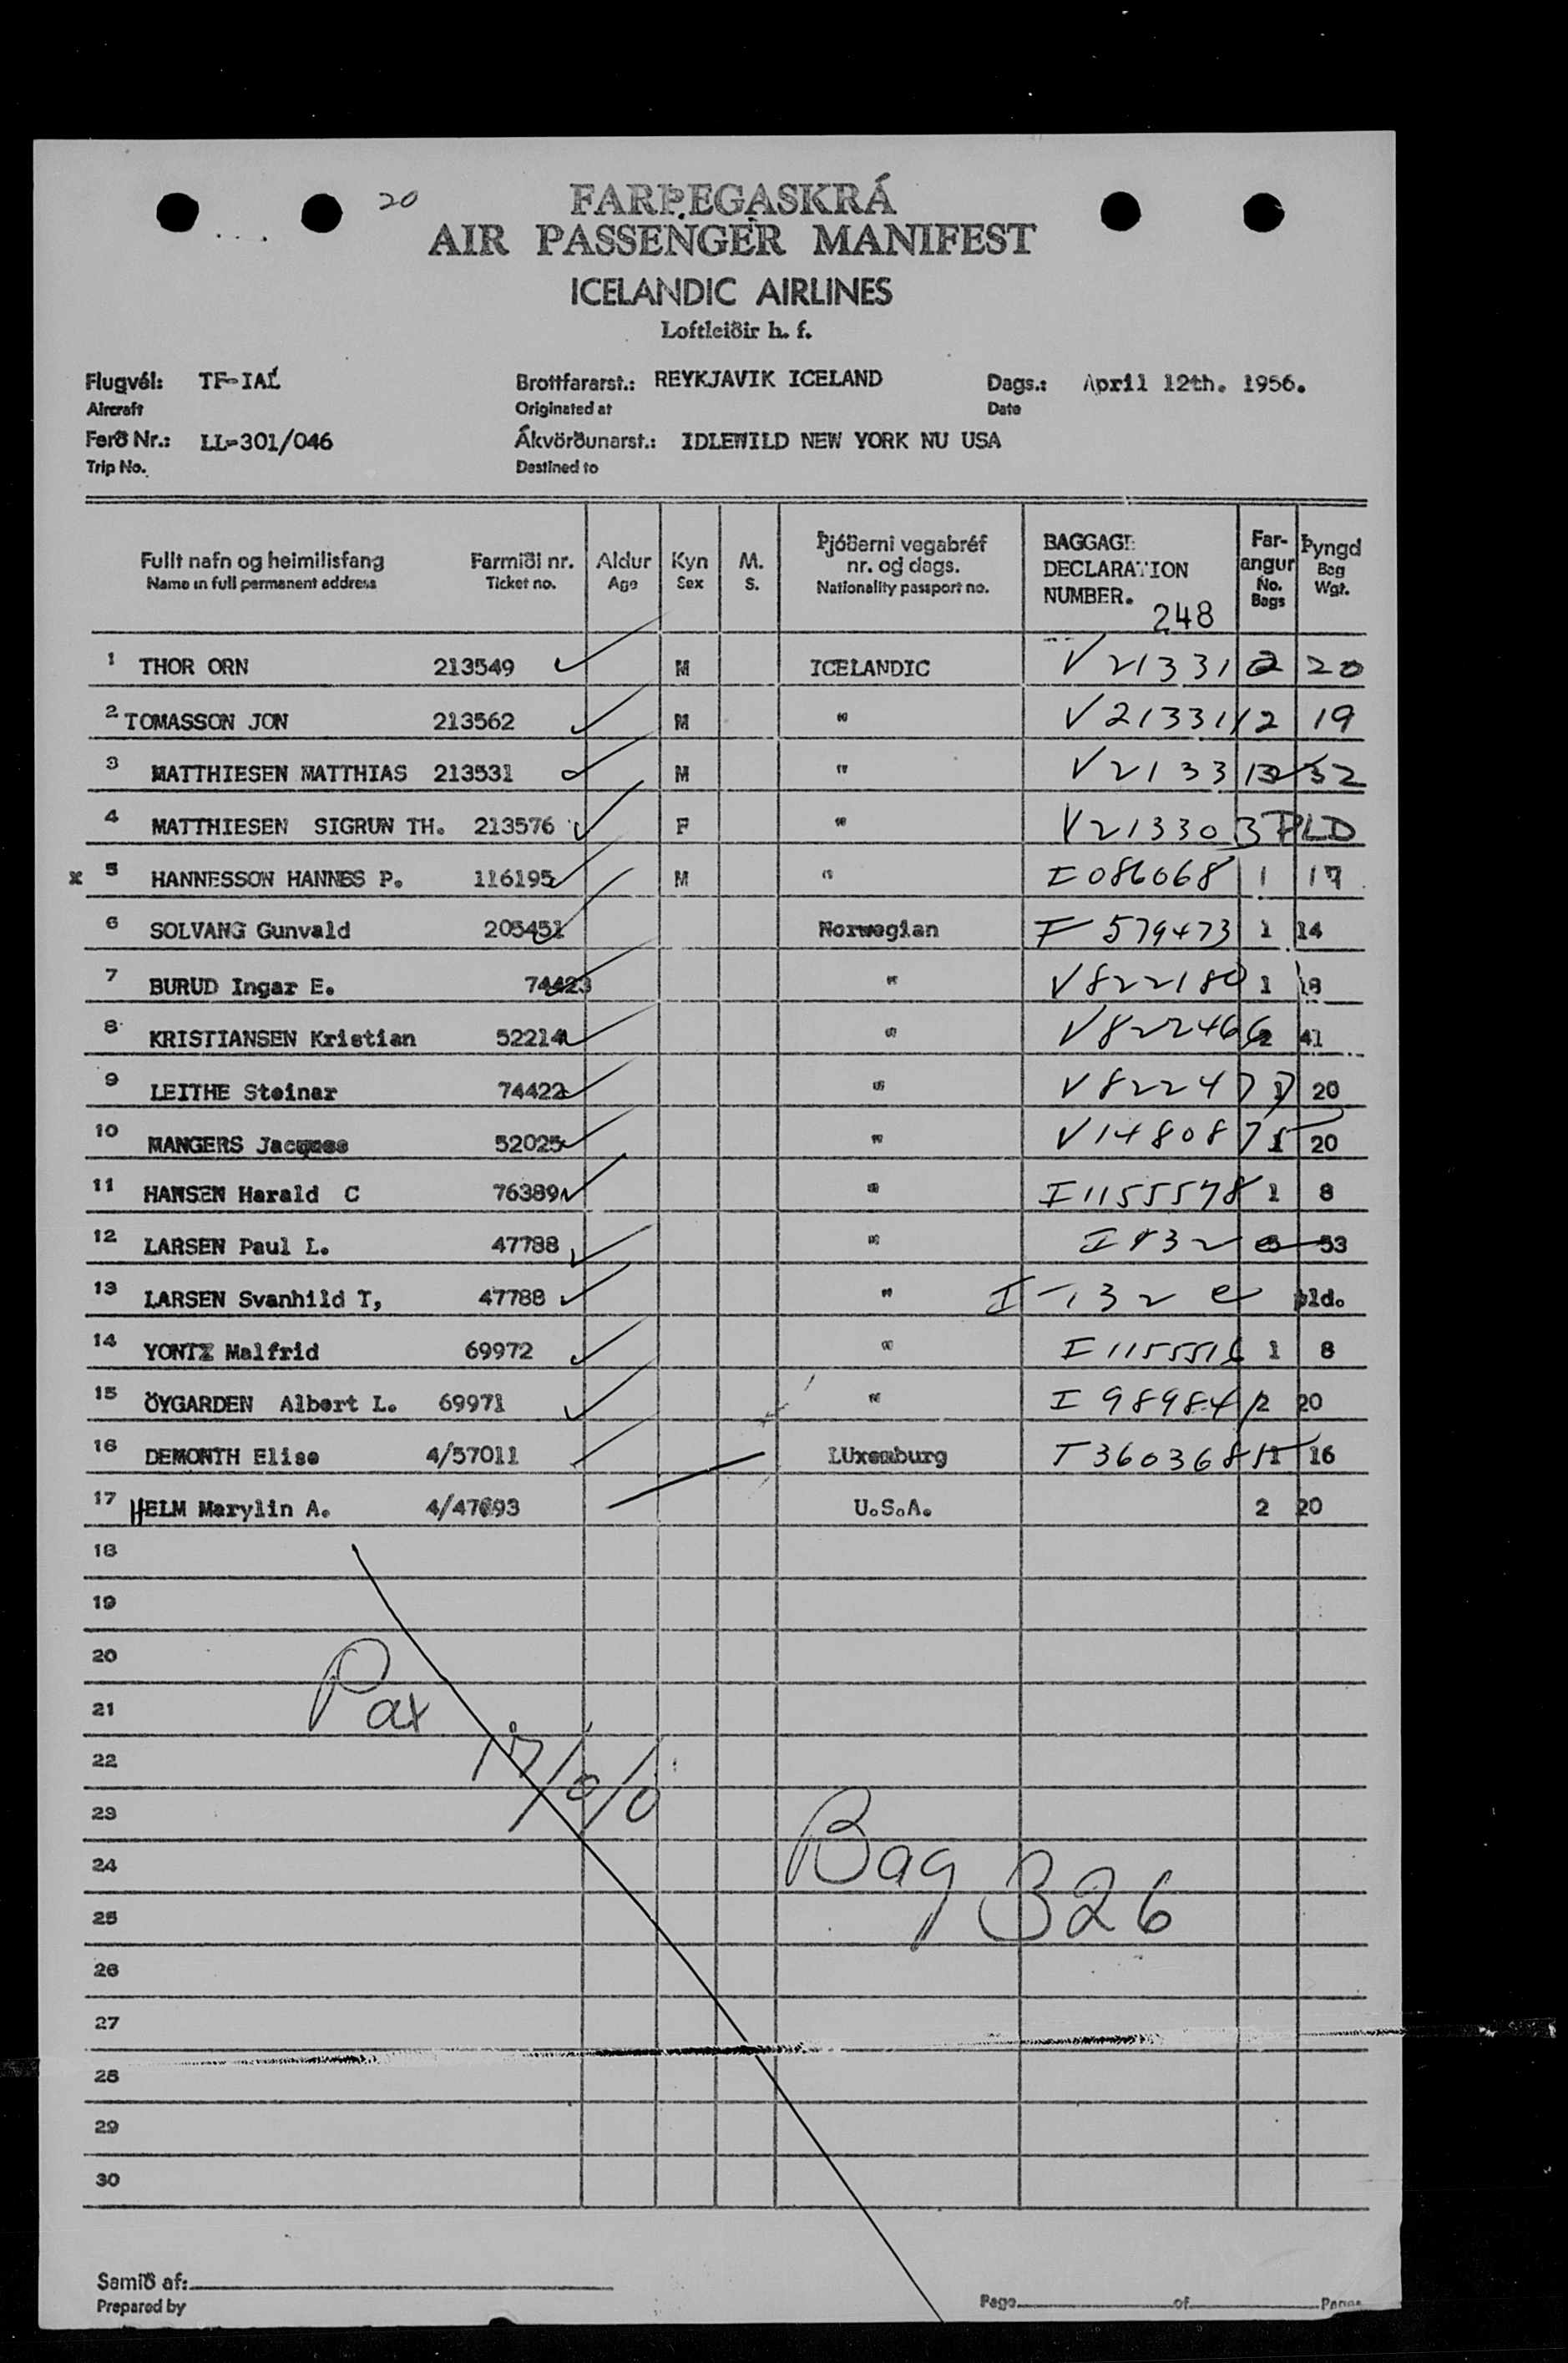 20
FARÞEGASKRÁ
AIR PASSENGER MANIFEST
ICELANDIC AIRLINES
Loftleiðir h. f.
Flugvél: TF-IAL Brottfararst.: REYKJAVIK ICELAND Dags.: April 12th. 1956.
Aircraft Originated at Date
Ferð Nr.: LL-301/046 Ákvörðunarst.: IDLEWILD NEW YORK NU USA
Trip No. Destined to
Fullt nafn og heimilisfang Farmiði nr. Aldur Kyn M. Þjóðerni vegabréf nr. og dags. BAGGAGE DECLARATION NUMBER. Farangur Þyngd
Name in full permanent address Ticket no. Age Sex S. Nationality passport no. 248 No. Bags Bag Wgt.
1 THOR ORN 213549 M ICELANDIC V 21331 2 20
2 TOMASSON JON 213562 M " V 21331 2 19
3 MATTHIESEN MATTHIAS 213531 M " V 2133 32
4 MATTHIESEN SIGRUN TH. 213576 F " V21330 3 PLD
x 5 HANNESSON HANNES P. 116195 M " I 086068 1 17
6 SOLVANG Gunvald 205451 Norwegian 579473 1 14
7 BURUD Ingar E. 74423 " V822180 1 18
8 KRISTIANSEN Kristian 52214 " V822466 2 41
9 LEITHE Steinar 74422 " V822477 1 20
10 MANGERS Jacques 52025 " V148087 1 20
11 HANSEN Harald C 76389 " I1155578 1 8
12 LARSEN Paul L. 47788 " 53
13 LARSEN Svanhild T, 47788 " pld.
14 YONTZ Malfrid 69972 " I 1155516 1 8
15 ÖYGARDEN Albert L. 69971 " I 98984 2 20
16 DEMONTH Elise 4/57011 LUxemburg T 360368 1 16
17 HELM Marylin A. 4/47693 U.S.A. 2 20
18
19
20
21
22
23
24
25
26
27
28
29
30
Pax
17/0/0
Bag 326
Samið af:
Prepared by
Page of Pages